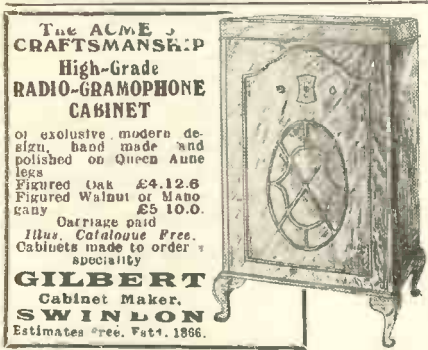 The ACME of
CRAFTSMANSHIP
High-Grade
RADIO-GRAMOPHONE
CABINET
of exclusive, modern de-
sign, hand made and
polished on Queen Anne
legs
Figured Oak £4.12.6
Figured Walnut or Maho
gany £5 10.0.
Carriage paid
Illus. Catalogue Free.
Cabinets made to order a
speciality
GILBERT
Cabinet Maker.
SWINDON
Estimates Free. Estd. 1866.